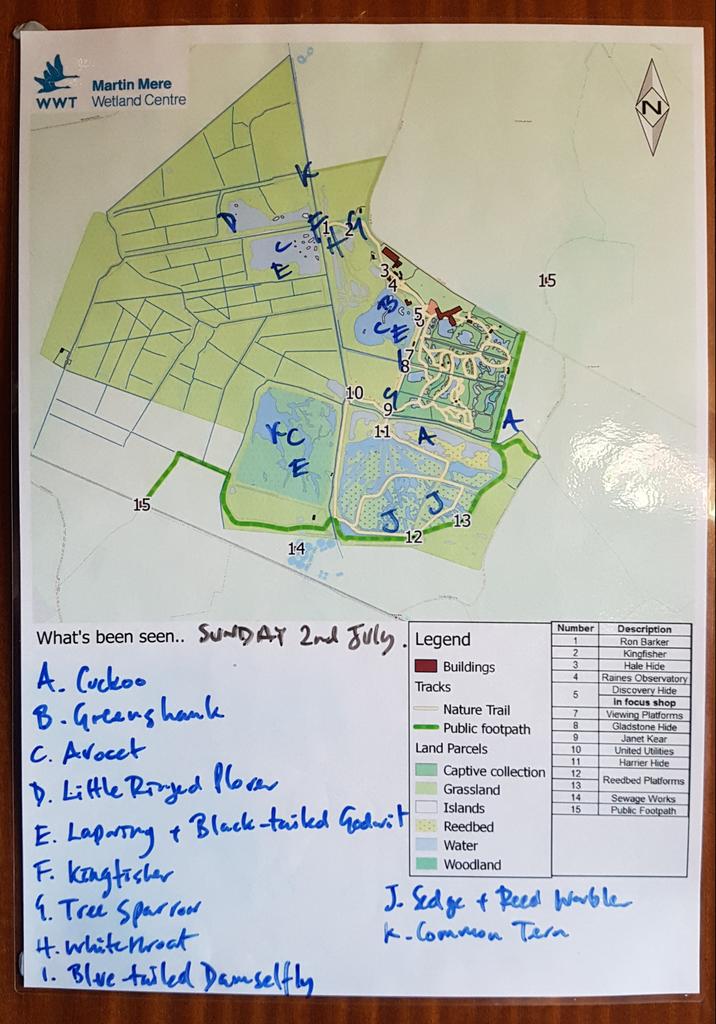 WWT
Martin Mere
Wetland Centre
N
K
D
F
1
2
G
H
C
E
3
4
15
B
5
C
E
6
7
I
8
10
G
9
A
11
A
K C
E
J
J
15
13
12
14
What's been seen.. SUNDAY 2nd July.
A. Cuckoo
B. Greenshank
C. Avocet
D. Little Ringed Plover
E. Lapwing + Black-tailed Godwit
F. Kingfisher
G. Tree Sparrow
H. Whitethroat
I. Blue tailed Damselfly
J. Sedge + Reed Warbler
K. Common Tern
Legend
Buildings
Tracks
Nature Trail
Public footpath
Land Parcels
Captive collection
Grassland
Islands
Reedbed
Water
Woodland
Number Description
1 Ron Barker
2 Kingfisher
3 Hale Hide
4 Raines Observatory
5 Discovery Hide
In focus shop
7 Viewing Platforms
8 Gladstone Hide
9 Janet Kear
10 United Utilities
11 Harrier Hide
12 Reedbed Platforms
13
14 Sewage Works
15 Public Footpath